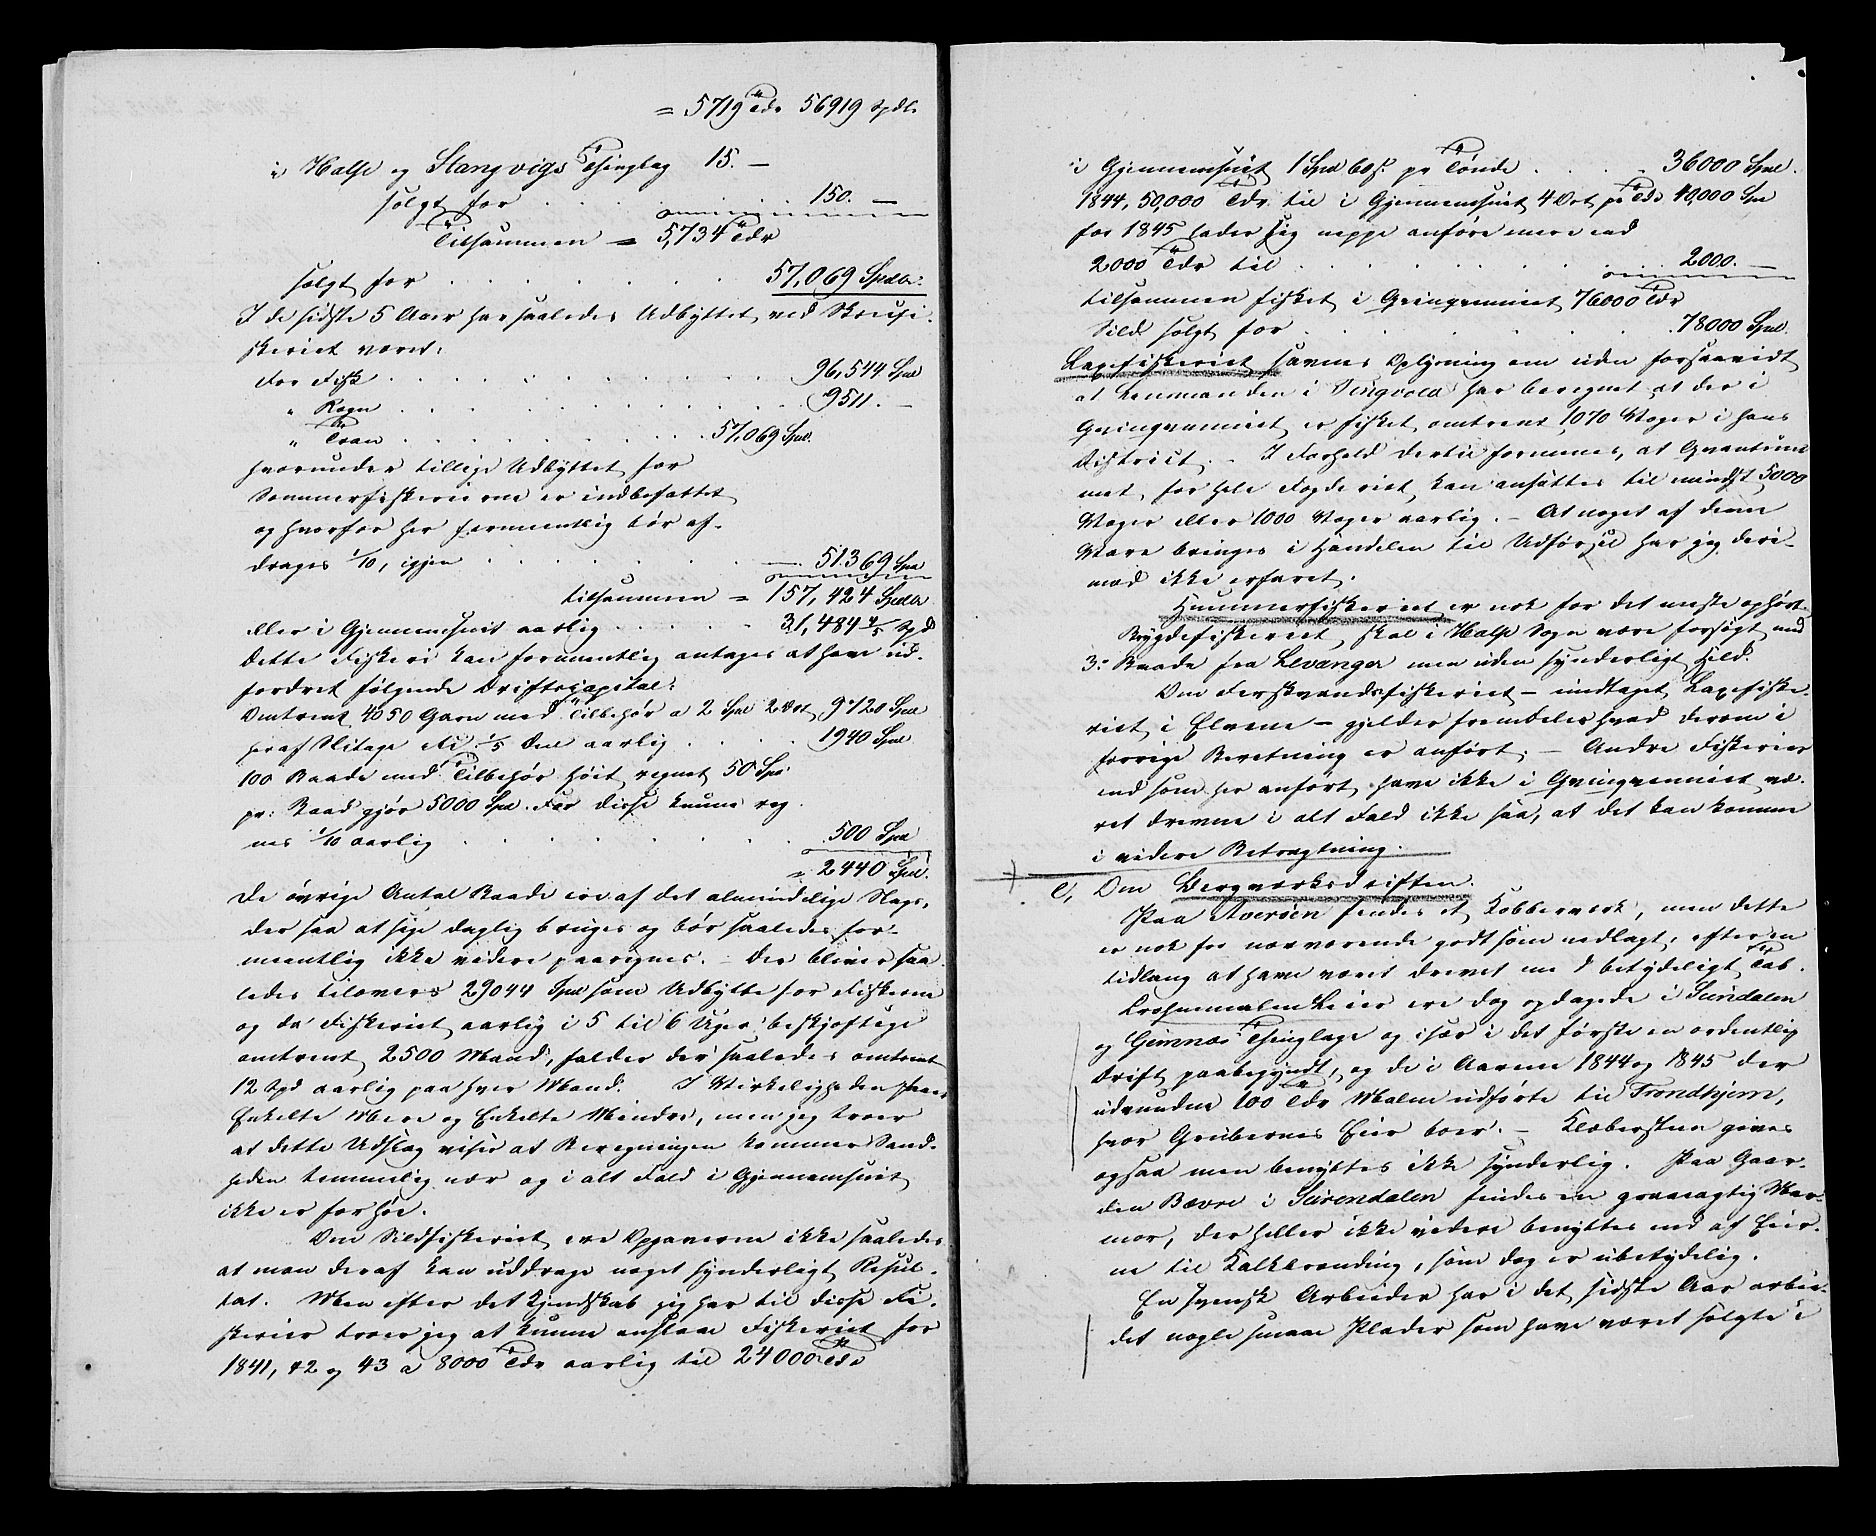 = 5719 Tdr 56919 Spdl.
i Halse og Stangvigs Thinglag 15. —
solgt for . . . . . . 150. —
Tilsammen = 5,734 Tdr
solgt for . . . . . . 57,069 Spdlr.
I de sidste 5 Aar har saaledes Udbyttet ved Skreifi-
skeriet været:
For Fisk . . . . . . 96,544 Spd
" Rogn . . . . . . 9511. —
" Tran . . . . . . 57,069 Spd.
hvorunder tillige Udbyttet for
Sommerfiskerierne er indbefattet
og hvorfor her formentlig bør af-
drages 1/10, igjen . . . . . . 51.369 Spd
tilsammen = 157,424 Spdlr
eller i Gjennemsnit aarlig . . . . 31,484 4/5 Spd
Dette Fiskeri kan formentlig antages at have ud-
fordret følgende Driftscapital:
Omtrent 4050 Garn med Tilbehør a 2 Spd 2 Ort 9720 Spd
heraf Slitage til 1/5 Deel aarlig . . . . 1940 Spd
100 Baade med Tilbehør høit regnet 50 Spd
pr: Baad gjør 5000 Spd. For disse kunne reg-
nes 1/10 aarlig . . . . . . 500 Spd
= 2440 Spd.
De øvrige Antal Baade ere af det almindelige Slags,
der saa at sige daglig bruges og bør saaledes for-
mentlig ikke videre paaregnes. – Der bliver saa-
ledes tilovers 29044 Spd som Udbytte for Fiskerne
og da Fiskeriet aarlig i 5 til 6 Uger beskjæftige
omtrent 2500 Mand, falder der saaledes omtrent
12 Spd aarlig paa hver Mand. I Virkeligheden faaer
Enkelte Mere og Enkelte Mindre, men jeg troer
at dette Udslag viser at Beregningen kommer Sand-
heden temmelig nær og i alt Fald i Gjennemsnit
ikke er for høi.
Om Sildfiskeriet ere Opgaverne ikke saaledes
at man deraf kan uddrage noget synderligt Resul-
tat. Men efter det Kjendskab jeg har til disse Fi-
skerier troer jeg at kunne anslaae Fiskeriet for
1841, 42 og 43 a 8000 Tdr aarlig til 24000 Tdr
i Gjennemsnit 1 Spd 60 s. pr Tønde . . . . 36000 Spd.
1844, 50,000 Tdr til i Gjennemsnit 4 Ort pr Tdr 40,000 Spd
for 1845 lader sig neppe anføre mere end
2000 Tdr til . . . . . . 2000. —
tilsammen fisket i Qvinqvenniet 76000 Tdr
Sild solgt for . . . . . . 78000 Spd.
Laxefiskeriet savnes Oplysning om uden forsaavidt
at Lensmanden i Tingvold har beregnet at der i
Qvinqvenniet er fisket omtrent 1070 Voger i hans
District. – I Forhold dertil formenes, at Qvantum-
met for hele Fogderiet kan ansættes til mindst 5000
Voger eller 1000 Voger aarlig. – At noget af denne
Vare bringes i Handelen til Udførsel har jeg deri-
mod ikke erfaret.
Hummerfiskeriet er nok for det meste ophørt.
Brygdefiskeriet skal i Halse Sogn være forsøgt med
3: Baade fra Levanger men uden synderligt Held.
Om Ferskvandsfiskeriet – undtaget Laxefiske-
riet i Elvene – gjelder fremdeles hvad derom i
forrige Beretning er anført. – Andre Fiskerier
end som her anført have ikke i Qvinqvenniet væ-
ret drevne i alt Fald ikke saa, at det kan komme
i videre Betragtning.
e, Om Bergværksdriften.
Paa Averøen findes et Kobberværk, men dette
er nok for nærværende godt som nedlagt, efter en
tidlang at have været drevet med betydeligt Tab.
Chrommalm Leier ere dog opdagede i Sundalen
og Gimnæs Thinglage og især i det første en ordentlig
Drift paabegyndt, og de i Aarene 1844 og 1845 der
udvundne 100 Tdr Malm udførte til Trondhjem,
hvor Grubernes Eier boer. – Klæbersteen gives
ogsaa men benyttes ikke synderlig. Paa Gaar-
den Bævre i Surendalen findes en graaagtig Mar-
mor, der heller ikke videre benyttes end af Eier-
ne til Kalkbrænding, som dog er ubetydelig.
En svensk Arbeider har i det sidste Aar arbei-
det nogle smaae Plader som have været solgte i